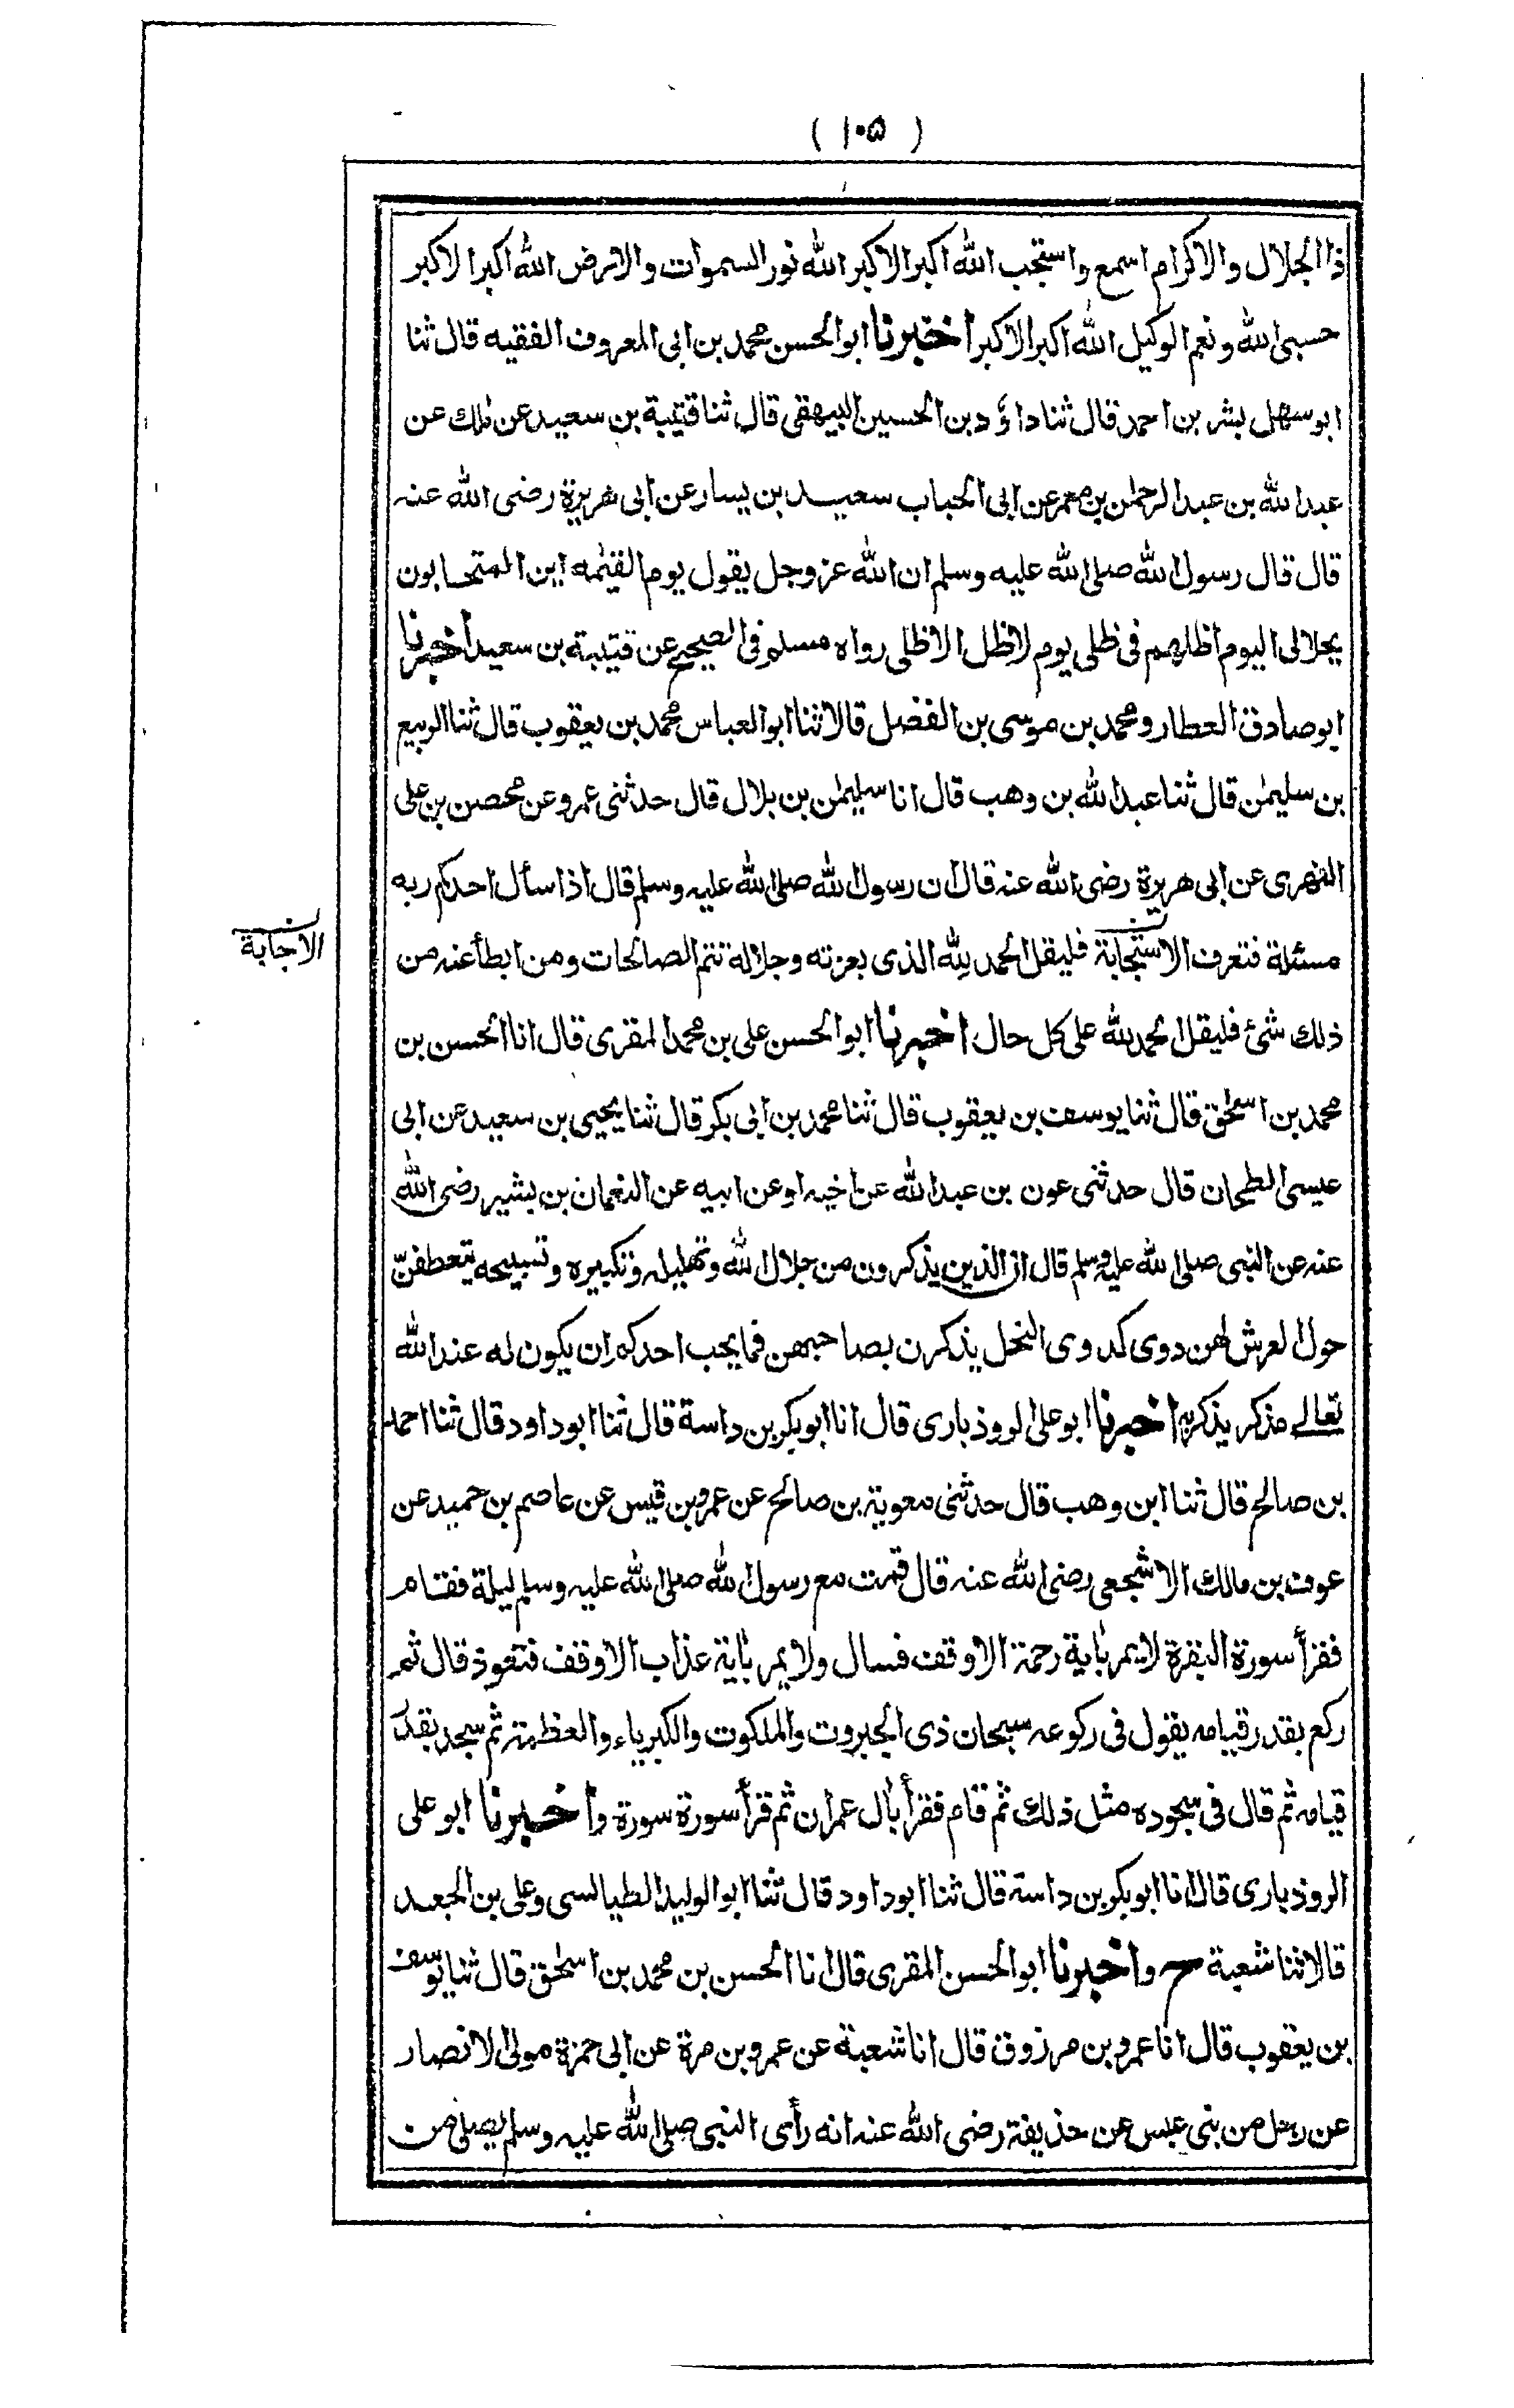 ( ١٠٥ )
ذا الجلال والاكرام اسمع واستجب الله اكبر الاكبر الله نور السموات والارض الله اكبر الاكبر
حسبي الله ونعم الوكيل الله اكبر الاكبر اخبرنا ابو الحسن محمد بن ابى المعروف الفقيه قال ثنا
ابو سهل بشر بن احمد قال ثنا داؤد بن الحسين البيهقى قال ثنا قتيبة بن سعيد عن مٰلك عن
عبد الله بن عبد الرحمٰن بن معمر عن ابى الحباب سعيد بن يسار عن ابى هريرة رضى الله عنه
قال قال رسول الله صلى الله عليه وسلم ان الله عز وجل يقول يوم القيٰمه اين المتحابون
بجلالى اليوم اظلهم فى ظلى يوم لا ظل الا ظلى رواه مسلم فى الصحيح عن قتيبة بن سعيد اخبرنا
ابو صادق العطار ومحمد بن موسى بن الفضل قالا ثنا ابو العباس محمد بن يعقوب قال ثنا الربيع
بن سليمٰن قال ثنا عبد الله بن وهب قال انا سليمٰن بن بلال قال حدثنى عمرو عن محصن بن على
الفهرى عن ابى هريرة رضى الله عنه قال ان رسول الله صلى الله عليه وسلم قال اذا سأل احدكم ربه
مسئلة فتعرف الاستجابة فليقل الحمد لله الذى بعزته وجلاله تتم الصالحات ومن ابطأ عنه من
الاجابة
ذلك شئ فليقل الحمد لله على كل حال اخبرنا ابو الحسن على بن محمد المقرى قال انا الحسن بن
محمد بن اسحٰق قال ثنا يوسف بن يعقوب قال ثنا محمد بن ابى بكر قال ثنا يحيى بن سعيد عن ابى
عيسى الطحان قال حدثنى عون بن عبد الله عن اخيه او عن ابيه عن النعمان بن بشير رضى الله
عنه عن النبى صلى الله عليه وسلم قال ان الذين يذكرون من جلال الله وتهليله وتكبيره وتسبيحه يتعطفن
حول العرش لهن دوى كدوى النحل يذكرن بصاحبهن فما يحب احدكم ان يكون له عند الله
تعالے مذكر يذكر به اخبرنا ابو على الروذبارى قال انا ابو بكر بن داسة قال ثنا ابو داود قال ثنا احمد
بن صالح قال ثنا ابن وهب قال حدثنى معوية بن صالح عن عمرو بن قيس عن عاصم بن حميد عن
عوف بن مالك الاشجعى رضى الله عنه قال قمت مع رسول الله صلى الله عليه وسلم ليلة فقام
فقرأ سورة البقرة لا يمر بأية رحمة الا وقف فسال ولا يمر بأية عذاب الا وقف فتعوذ قال ثم
ركع بقدر قيامه يقول فى ركوعه سبحان ذى الجبروت والملكوت والكبرياء والعظمة ثم سجد بقدر
قيامه ثم قال فى سجوده مثل ذلك ثم قام فقرأ بأل عمران ثم قرأ سورة سورة واخبرنا ابو على
الروذبارى قال انا ابو بكر بن داسة قال ثنا ابو داود قال ثنا ابو الوليد الطيالسى وعلى بن الجعد
قالا ثنا شعبة ح واخبرنا ابو الحسن المقرى قال انا الحسن بن محمد بن اسحٰق قال ثنا يوسف
بن يعقوب قال انا عمرو بن مرزوق قال انا شعبة عن عمرو بن مرة عن ابى حمزة مولى الانصار
عن رجل من بنى عبس عن حذيفة رضى الله عنه انه رأى النبى صلى الله عليه وسلم يصلى من